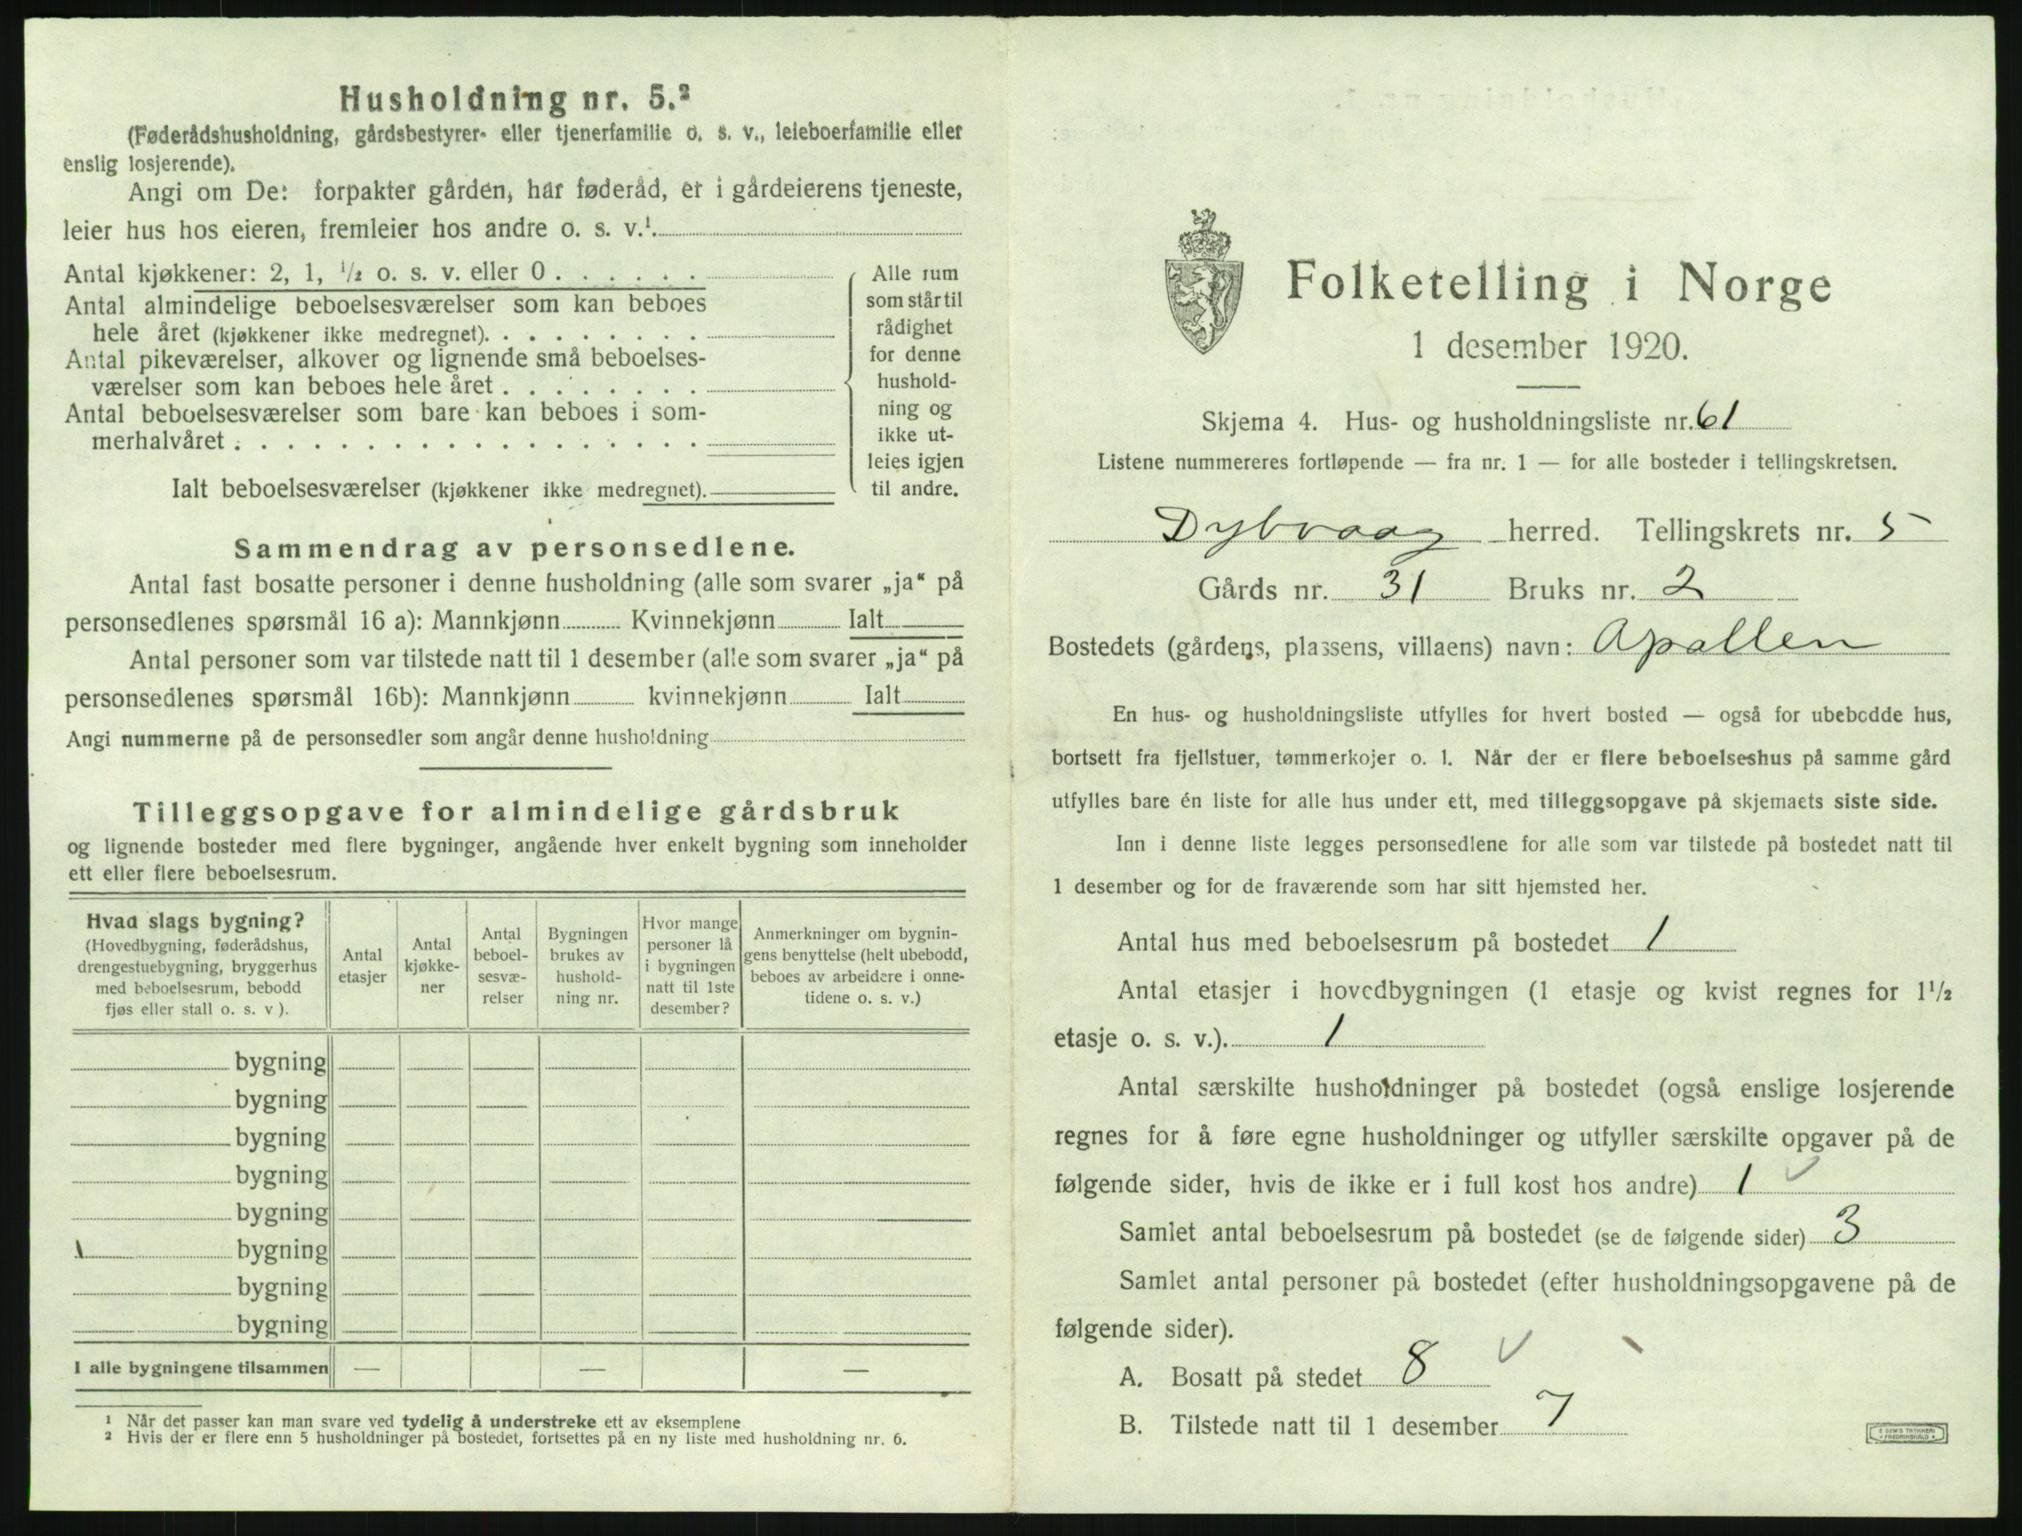 Husholdning nr. 5.²
(Føderådshusholdning, gårdsbestyrer- eller tjenerfamilie o. s. v., leieboerfamilie eller
enslig losjerende).
Angi om De: forpakter gården, har føderåd, er i gårdeierens tjeneste,
leier hus hos eieren, fremleier hos andre o. s. v.¹
Antal kjøkkener: 2, 1, ½ o. s. v. eller 0 . . . . . .
Antal almindelige beboelsesværelser som kan beboes
hele året (kjøkkener ikke medregnet). . . . . . . . .
Antal pikeværelser, alkover og lignende små beboelses-
værelser som kan beboes hele året . . . . . . . .
Antal beboelsesværelser som bare kan beboes i som-
merhalvåret . . . . . . . . . . . . . . . . . .
Ialt beboelsesværelser (kjøkkener ikke medregnet).
Alle rum
som står til
rådighet
for denne
hushold-
ning og
ikke ut-
leies igjen
til andre.
Sammendrag av personsedlene.
Antal fast bosatte personer i denne husholdning (alle som svarer „ja“ på
personsedlenes spørsmål 16 a): Mannkjønn Kvinnekjønn Ialt
Antal personer som var tilstede natt til 1 desember (alle som svarer „ja“ på
personsedlenes spørsmål 16b): Mannkjønn kvinnekjønn Ialt
Angi nummerne på de personsedler som angår denne husholdning
Tilleggsopgave for almindelige gårdsbruk
og lignende bosteder med flere bygninger, angående hver enkelt bygning som inneholder
ett eller flere beboelsesrum.
Hvad slags bygning?
(Hovedbygning, føderådshus,
drengestuebygning, bryggerhus
med beboelsesrum, bebodd
fjøs eller stall o. s. v ).
Antal
etasjer
Antal
kjøkke-
ner
Antal
beboel-
sesvæ-
relser
Bygningen
brukes av
hushold-
ning nr.
Hvor mange
personer lå
i bygningen
natt til 1ste
desember?
Anmerkninger om bygnin-
gens benyttelse (helt ubebodd,
beboes av arbeidere i onne-
tidene o. s. v.)
bygning
bygning
bygning
bygning
bygning
bygning
bygning
bygning
I alle bygningene tilsammen — — —
¹ Når det passer kan man svare ved tydelig å understreke ett av eksemplene
² Hvis der er flere enn 5 husholdninger på bostedet, fortsettes på en ny liste med husholdning nr. 6.
Folketelling i Norge
1 desember 1920.
Skjema 4. Hus- og husholdningsliste nr. 61
Listene nummereres fortløpende — fra nr. 1 — for alle bosteder i tellingskretsen.
Dybvaag herred. Tellingskrets nr. 5
Gårds nr. 31 Bruks nr. 2
Bostedets (gårdens, plassens, villaens) navn: Apallen
En hus- og husholdningsliste utfylles for hvert bosted — også for ubebodde hus,
bortsett fra fjellstuer, tømmerkojer o. l. Når der er flere beboelseshus på samme gård
utfylles bare én liste for alle hus under ett, med tilleggsopgave på skjemaets siste side.
Inn i denne liste legges personsedlene for alle som var tilstede på bostedet natt til
1 desember og for de fraværende som har sitt hjemsted her.
Antal hus med beboelsesrum på bostedet 1
Antal etasjer i hovedbygningen (1 etasje og kvist regnes for 1½
etasje o. s. v.). 1
Antal særskilte husholdninger på bostedet (også enslige losjerende
regnes for å føre egne husholdninger og utfyller særskilte opgaver på de
følgende sider, hvis de ikke er i full kost hos andre) 1 ✓
Samlet antal beboelsesrum på bostedet (se de følgende sider) 3
Samlet antal personer på bostedet (efter husholdningsopgavene på de
følgende sider).
A. Bosatt på stedet 8 ✓
B. Tilstede natt til 1 desember 7